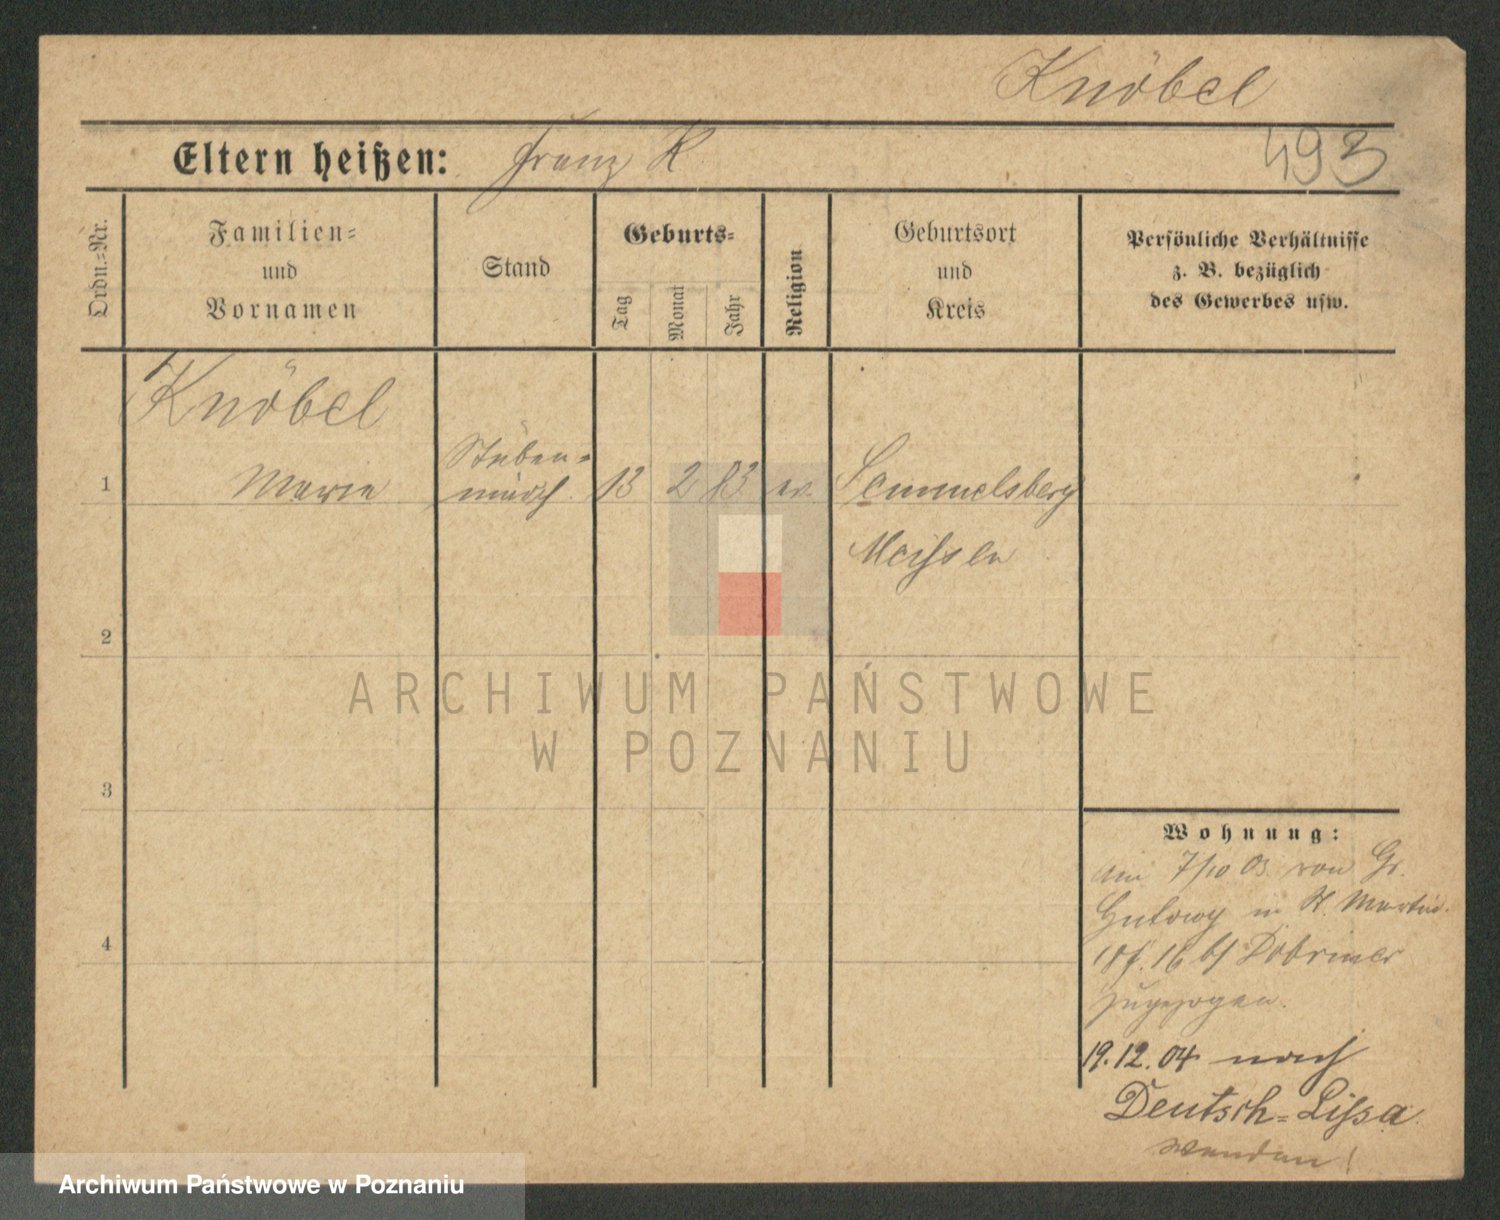 Knöbel
Eltern heißen: Franz K
493
Ordn.-Nr.
Familien=
und
Vornamen
Stand
Geburts=
Tag
Monat
Jahr
Religion
Geburtsort
und
Kreis
Persönliche Verhältnisse
z. B. bezüglich
des Gewerbes usw.
Knöbel
1 Marie Stuben= 13 2 83 ev. Semmelsberg
mädch.
Meißen
2
3
4
Wohnung:
am 7/10 03 von Gr.
in St. Martin
16 bei
zugezogen.
19.12.04 nach
Deutsch=Lissa
wenden!
ARCHIWUM PAŃSTWOWE
W POZNANIU
Archiwum Państwowe w Poznaniu